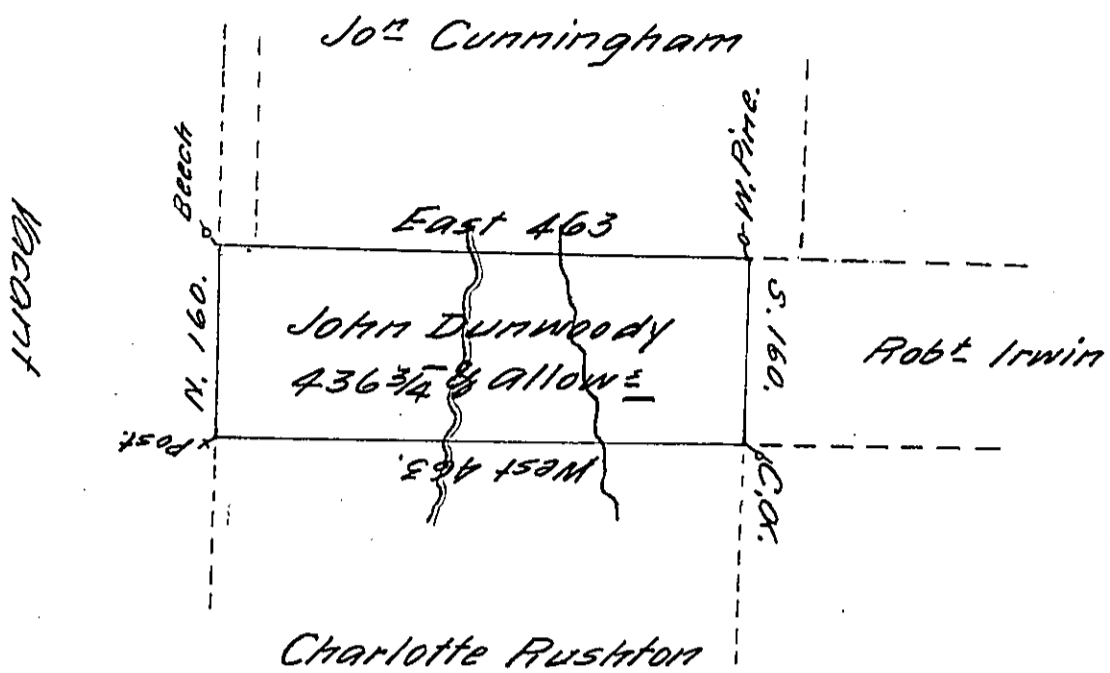 Joⁿ Cunningham
Beech
W. Pine.
East 463
Vacant
N. 160.
John Dunwoody
436 3/4 & allowᵗ
S. 160.
Robᵗ Irwin
Post.
West 463.
C.O.
Charlotte Rushton